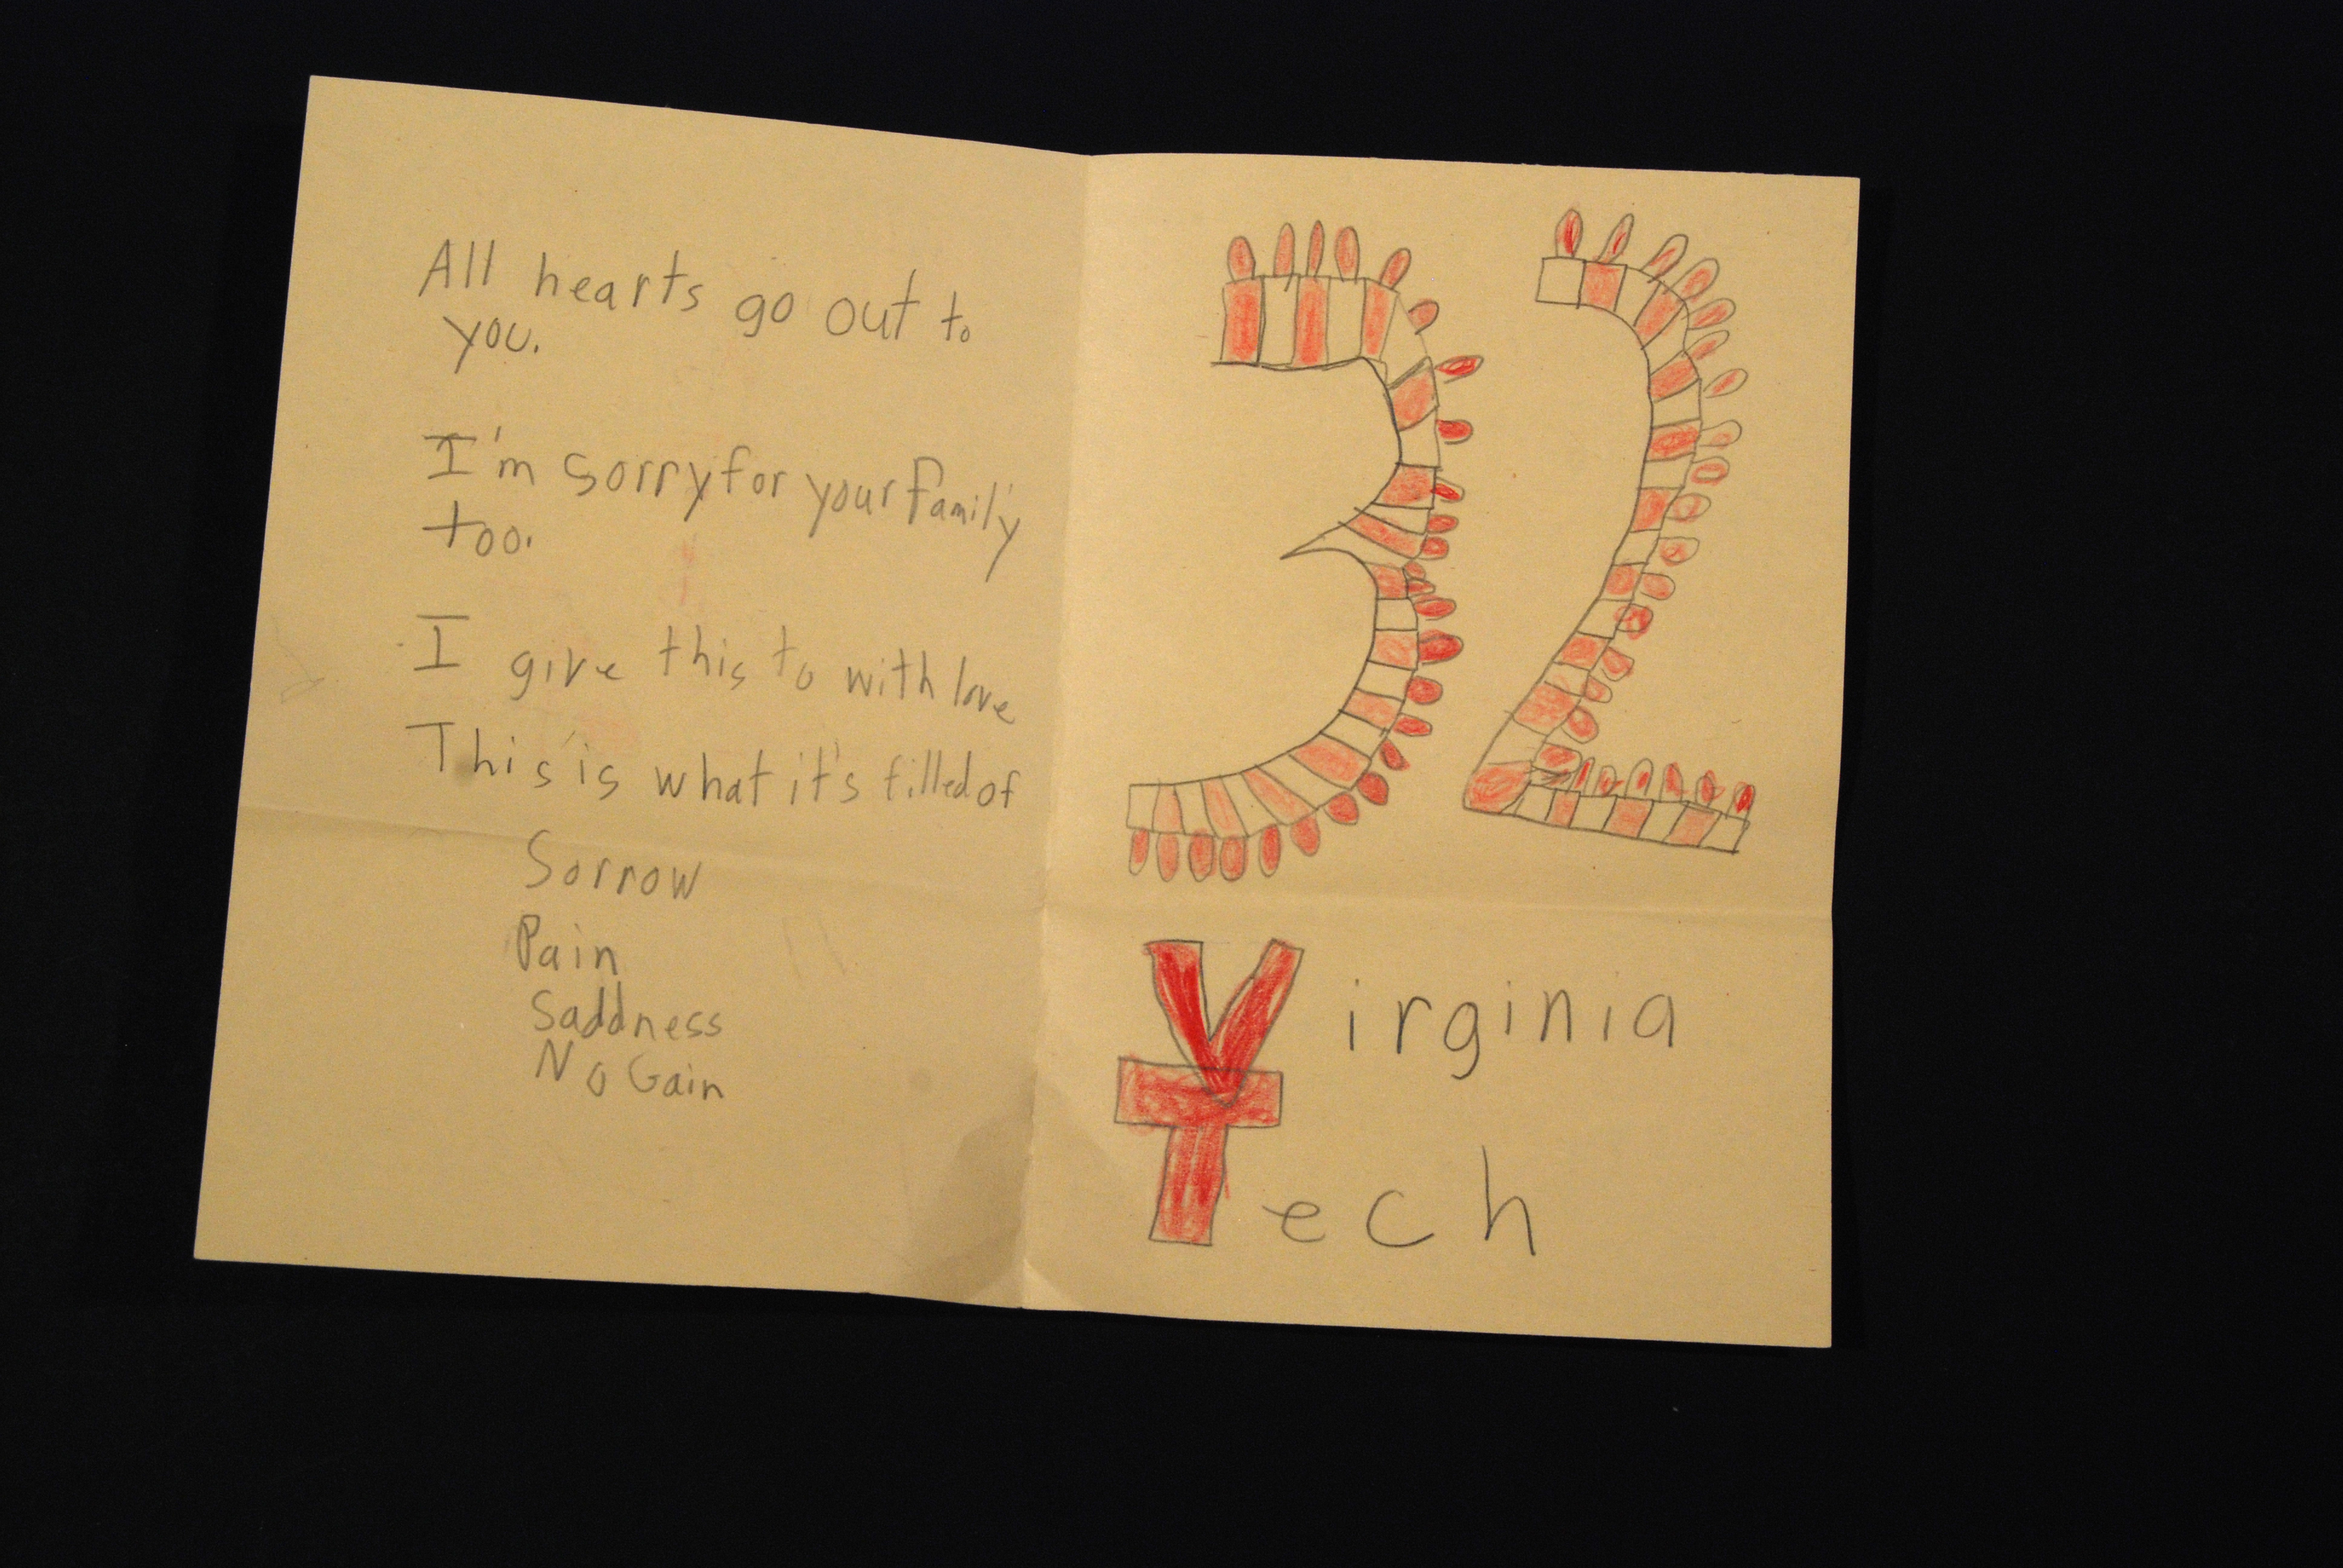 All hearts go out to
you.
I'm sorry for your family
too.
I give this to with love
This is what it's filled of
Sorrow
Pain
Saddness
No Gain
32
Virginia
Tech